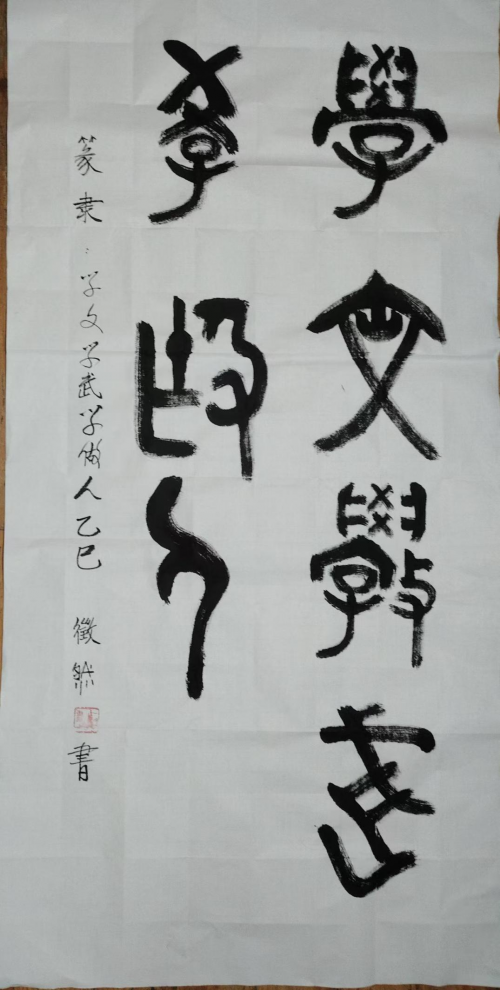 學文學武
學做人
篆隶：学文学武学做人乙巳 徵然書